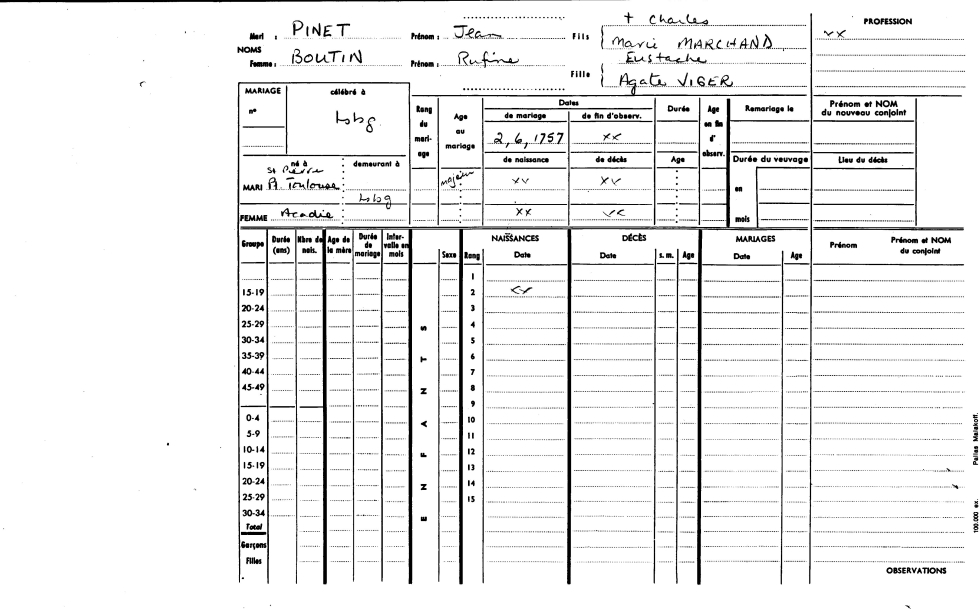 + Charles
PROFESSION
Mari : PINET Prénom : Jean Fils Marie MARCHAND xx
NOMS
Femme : BOUTIN Prénom : Rufine Fille Eustache
Agate VIGER
MARIAGE célébré à Rang du mariage Age au mariage Dates Durée Age en fin d' observ. Remariage le Prénom et NOM du nouveau conjoint
n° Lsbg de mariage de fin d'observ.
2, 6, 1757 xx
de naissance de décès Age Durée du veuvage Lieu du décès
né à demeurant à
St Pierre
MARI P. Toulouse majeur xx xx en
Lsbg
FEMME Acadie xx xx mois
Groupe Durée (ans) Nbre de nais. Age de la mère Durée de mariage Intervalle en mois ENFANTS Sexe Rang NAISSANCES Date DÉCÈS Date s. m. Age MARIAGES Date Age Prénom Prénom et NOM du conjoint
1
15-19 2 xx
20-24 3
25-29 4
30-34 5
35-39 6
40-44 7
45-49 8
9
0-4 10
5-9 11
10-14 12
15-19 13
20-24 14
25-29 15
30-34
Total
Garçons
Filles
OBSERVATIONS
100.000 ex. Pailles Malakoff.